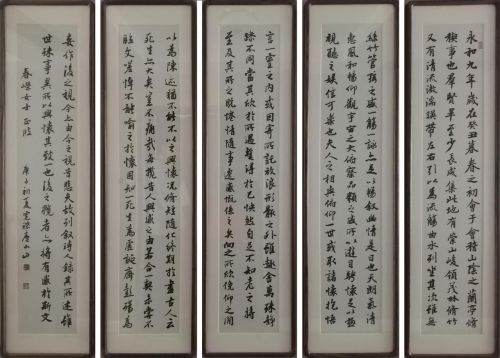 永和九年歲在癸丑暮春之初會于會稽山陰之蘭亭脩
禊事也羣賢畢至少長咸集此地有崇山峻領茂林脩竹
又有清流激湍暎帶左右引以為流觴曲水列坐其次雖無
絲竹管弦之盛一觴一詠亦足以暢敘幽情是日也天朗氣清
惠風和暢仰觀宇宙之大俯察品類之盛所以遊目騁懷足以極
視聽之娛信可樂也夫人之相與俯仰一世或取諸懷抱悟
言一室之內或因寄所託放浪形骸之外雖趣舍萬殊靜
躁不同當其欣於所遇暫得於己快然自足不知老之將
至及其所之既惓情隨事遷感慨係之矣向之所欣俛仰之間
以為陳迹猶不能不以之興懷況脩短隨化終期於盡古人云
死生亦大矣豈不痛哉每攬昔人興感之由若合一契未嘗不
臨文嗟悼不能喻之於懷固知一死生為虛誕齊彭殤為
妄作後之視今亦由今之視昔悲夫故列敘時人錄其所述雖
世殊事異所以興懷其致一也後之覽者亦將有感於斯文
女士正
初夏